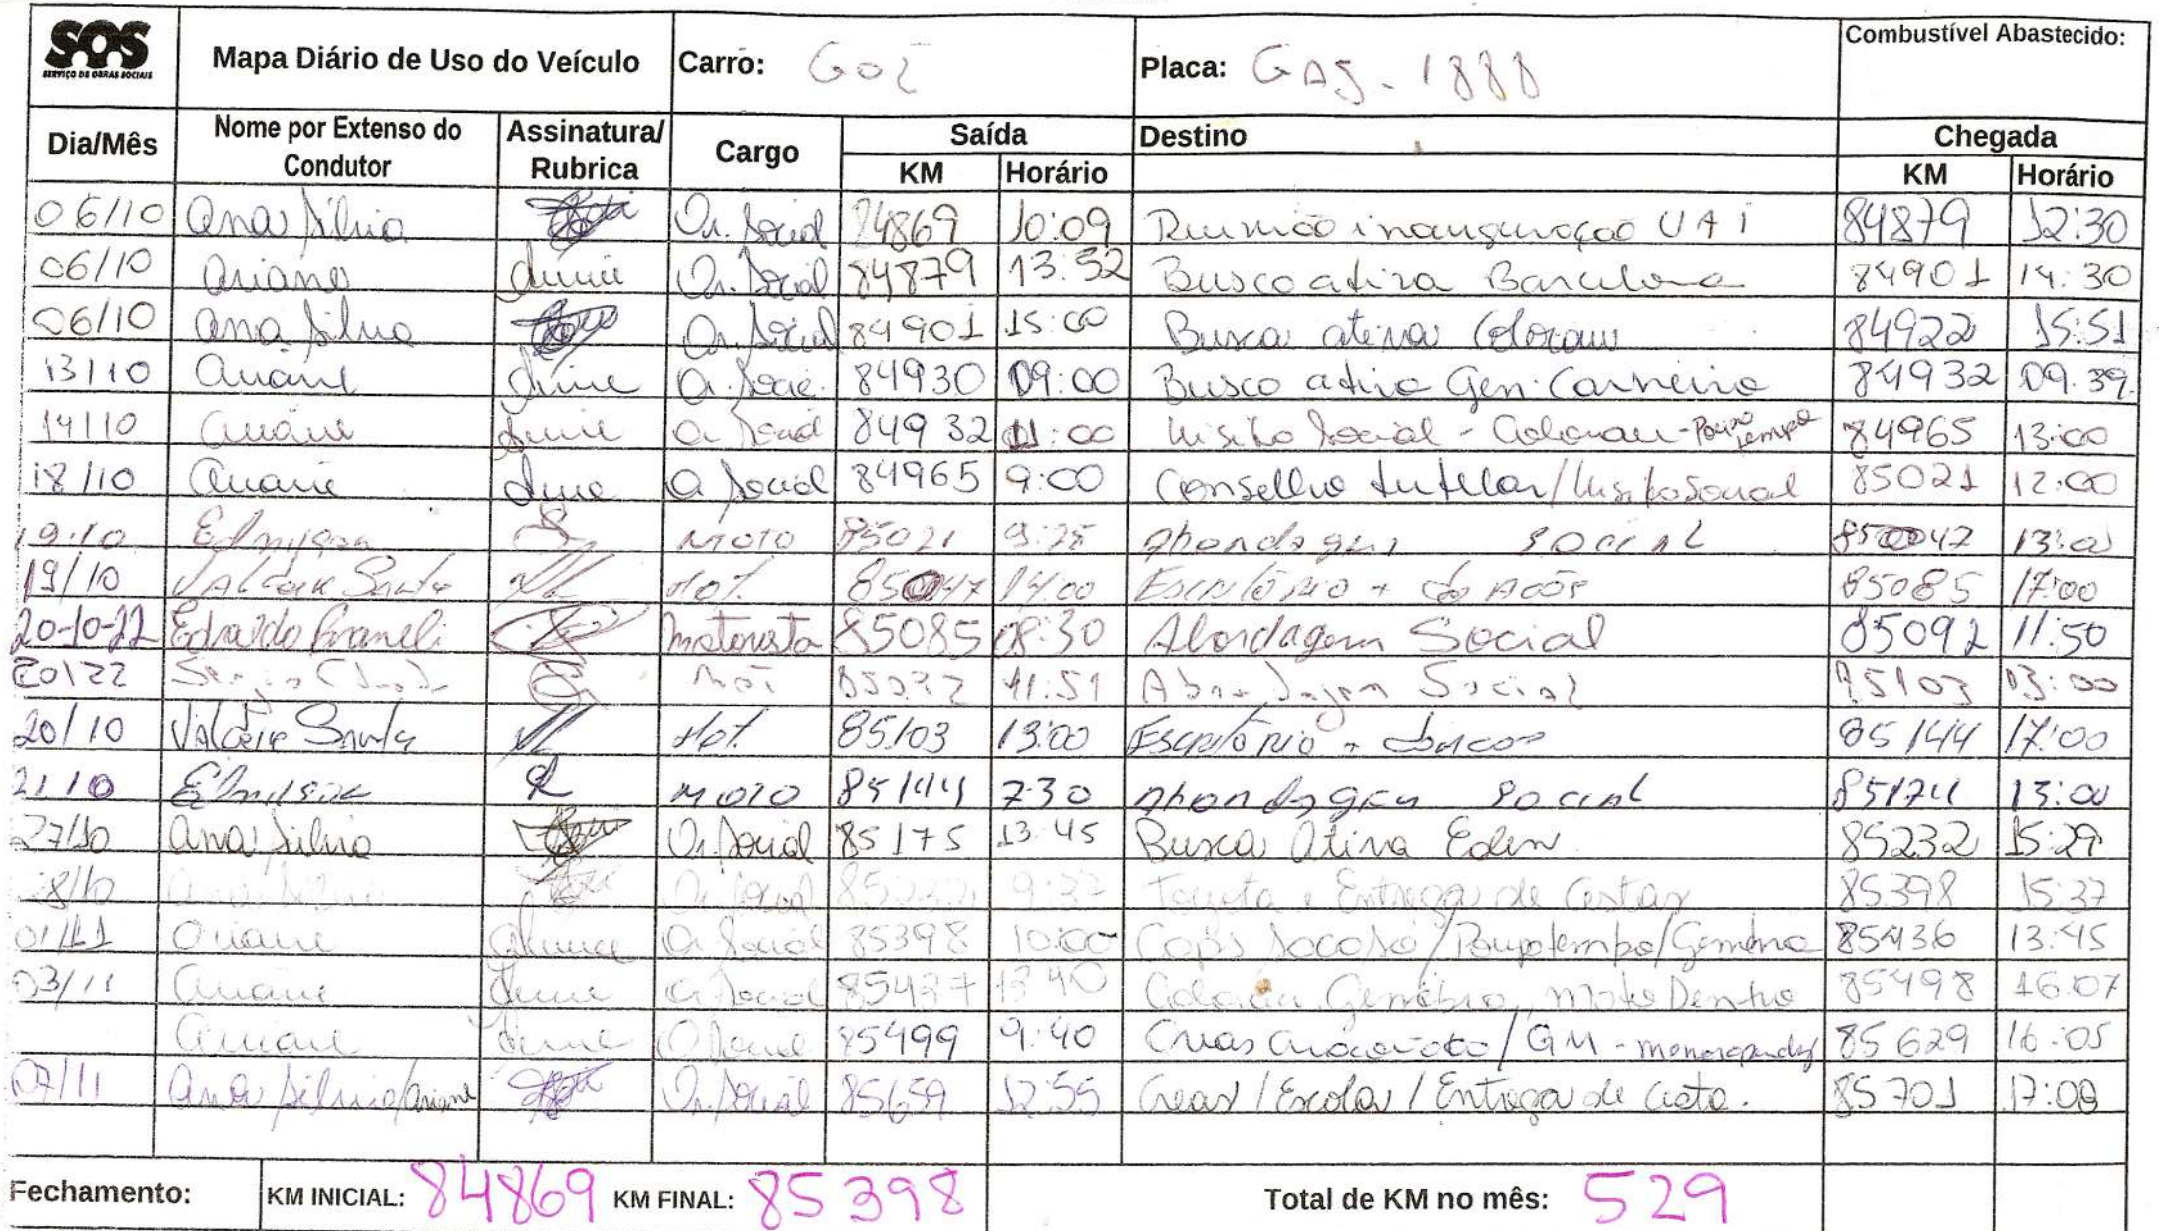 SOS
SERVIÇO DE OBRAS SOCIAIS
Mapa Diário de Uso do Veículo
Carro: Gol
Placa: GAJ-1888
Combustível Abastecido:
Dia/Mês Nome por Extenso do Condutor Assinatura/Rubrica Cargo Saída Destino Chegada
KM Horário KM Horário
06/10 Ana Silvia A. Social 84869 10:09 Reunião inauguração UAI 84879 12:30
06/10 Ariane A. Social 84879 13:52 Busca ativa Barcelona 84901 14:30
06/10 Ana Silvia A. Social 84901 15:00 Busca ativa 84922 15:51
13/10 Ariane A. Socia. 84930 09:00 Busca ativa Gen. Carneiro 84932 09:39
14/10 Ariane A Social 84932 11:00 Visita Social - - Poupa tempo 84965 13:00
18/10 Ariane A Social 84965 9:00 Conselho tutelar/Visita Social 85021 12:00
19.10 Edmilson MOTO 85021 9:25 abordagem social 85047 13:00
19/10 Mot. 85047 14:00 Escritório + 85085 17:00
20-10-22 Motorista 85085 08:30 Abordagem Social 85092 11:50
20/22 11:51 Abordagem Social 85103 13:00
20/10 Mot. 85103 13:00 Escritório + 85144 17:00
21/10 MOTO 85144 7:30 abordagem social 85174 13:00
27/10 Ana Silvia A. Social 85175 13:45 Busca Ativa Eden 85232 15:29
28/10 Ana Silvia A. Social 85232 Toyota e Entrega de Cestas 85398 15:37
01/11 Ariane A Social 85398 10:00 Caps /Poupatempo/ 85436 13:45
03/11 Ariane A Social 85437 13:40 Mato Dentro 85498 16:07
Ariane A Social 85499 9:40 /GM - 85629 16:05
07/11 Ana Silvia/Ariane A. Social 85659 12:55 Creas/Escola/Entrega de Cesta. 85701 17:00
Fechamento: KM INICIAL: 84869 KM FINAL: 85398 Total de KM no mês: 529